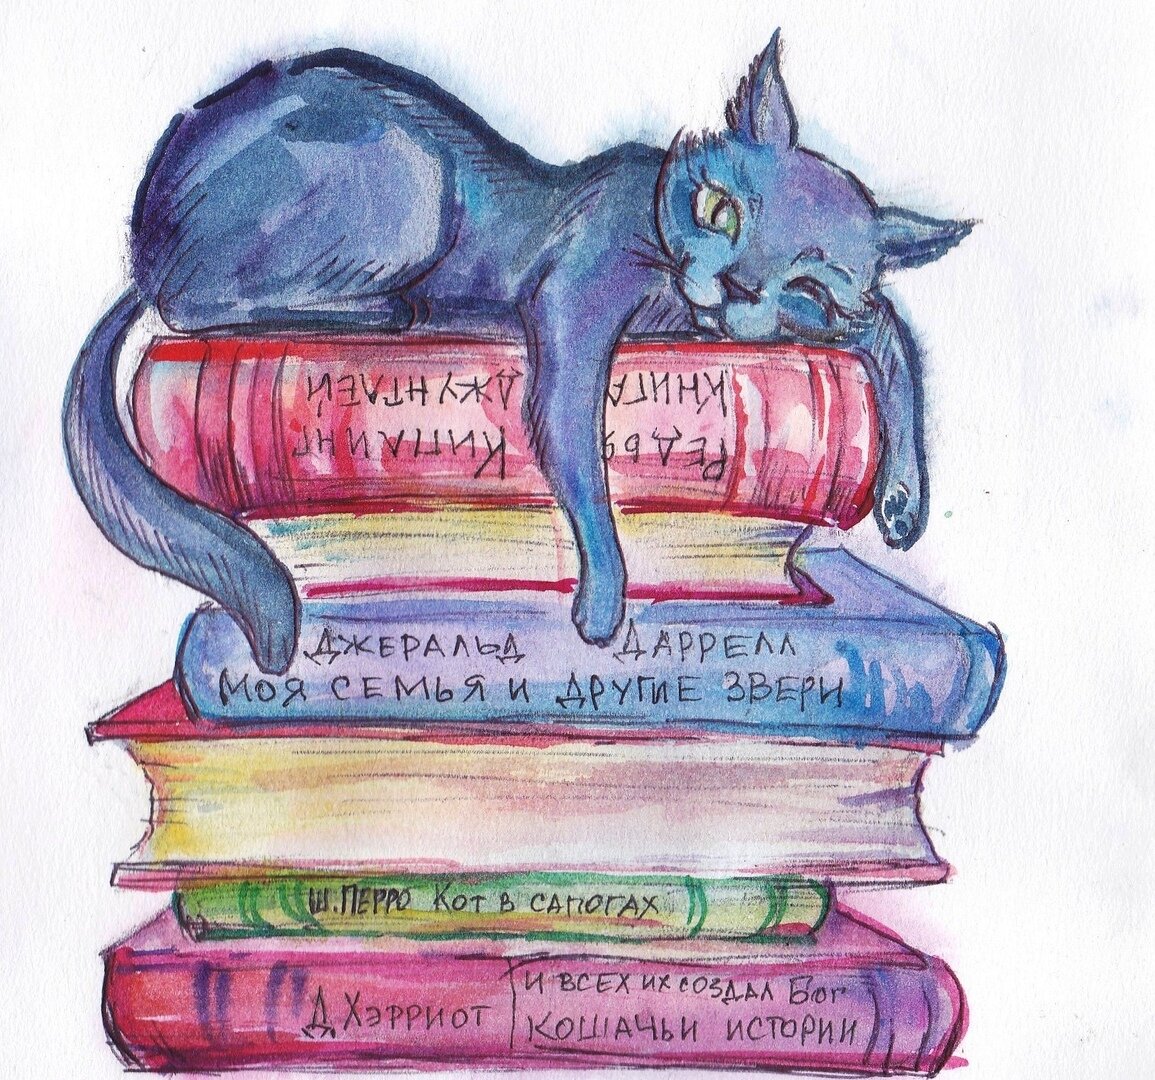 РЕДЬЯ КИПЛИНГ
КНИГА ДЖУНГЛЕЙ
ДЖЕРАЛЬД ДАРРЕЛЛ
МОЯ СЕМЬЯ И ДРУГИЕ ЗВЕРИ
Ш.ПЕРРО КОТ В САПОГАХ
Д ХЭРРИОТ
И ВСЕХ ИХ СОЗДАЛ БОГ
КОШАЧЬИ ИСТОРИИ